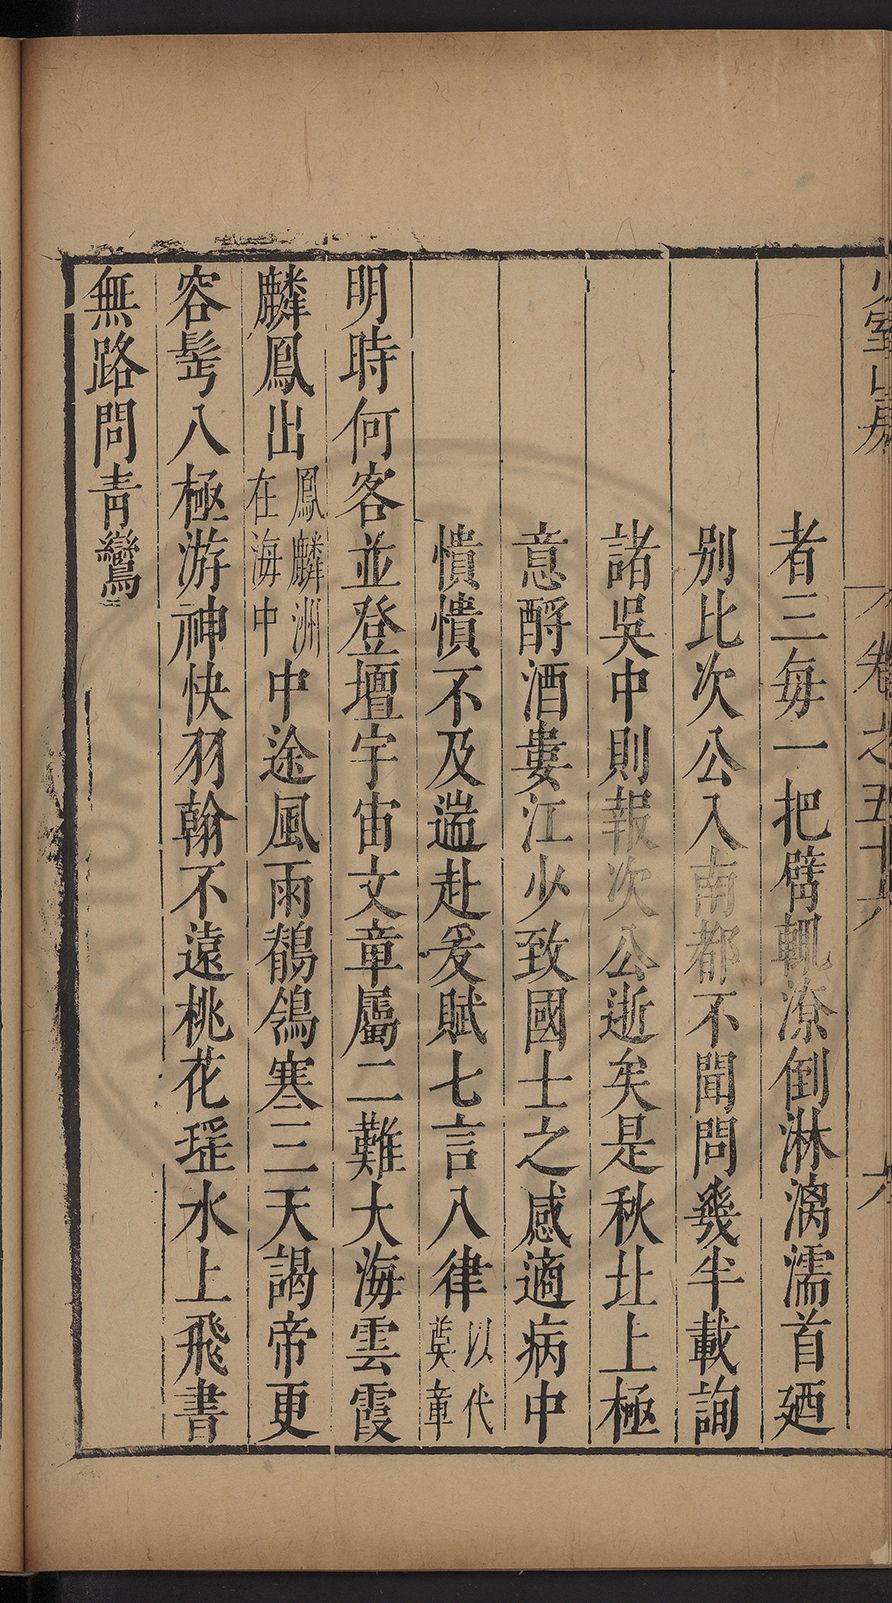 少室山房
卷之五十六
九
者三每一把臂輒潦倒淋漓濡首廼
別比次公入南都不聞問幾半載詢
諸吳中則報次公逝矣是秋北上極
意酹酒婁江少致國士之感適病中
憒憒不及耑赴爰賦七言八律以代奠章
明時何客並登壇宇宙文章屬二難大海雲霞
麟鳳出鳳麟洲在海中中途風雨鶺鴒寒三天謁帝更
容髩八極游神快羽翰不遠桃花瑶水上飛書
無路問青鸞